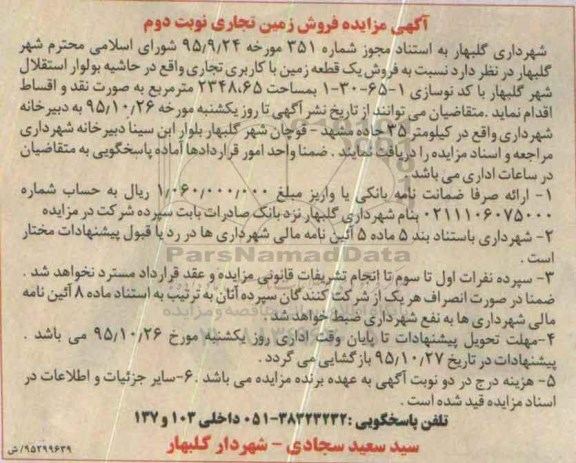 آگهی مزایده فروش زمین تجاری نوبت دوم
شهرداری گلبهار به استناد مجوز شماره ۳۵۱ مورخه ۹۵/۹/۲۴ شورای اسلامی محترم شهر
گلبهار در نظر دارد نسبت به فروش یک قطعه زمین با کاربری تجاری واقع در حاشیه بولوار استقلال
شهر گلبهار با کد نوسازی ۱-۶۵-۳۰-۱ بمساحت ۲۳۴۸/۶۵ مترمربع به صورت نقد و اقساط
اقدام نماید .متقاضیان می توانند از تاریخ نشر آگهی تا روز یکشنبه مورخه ۹۵/۱۰/۲۶ به دبیرخانه
شهرداری واقع در کیلومتر ۳۵ جاده مشهد - قوچان شهر گلبهار بلوار ابن سینا دبیرخانه شهرداری
مراجعه و اسناد مزایده را دریافت نمایند . ضمنا واحد امور قراردادها آماده پاسخگویی به متقاضیان
در ساعات اداری می باشد .
۱- ارائه صرفا ضمانت نامه بانکی یا واریز مبلغ ۱/۰۶۰/۰۰۰/۰۰۰ ریال به حساب شماره
۰۲۱۱۱۰۶۰۷۵۰۰۰ بنام شهرداری گلبهار نزد بانک صادرات بابت سپرده شرکت در مزایده
۲- شهرداری باستناد بند ۵ ماده ۵ آئین نامه مالی شهرداری ها در رد یا قبول پیشنهادات مختار
است .
ParsNamadData
۳- سپرده نفرات اول تا سوم تا انجام تشریفات قانونی مزایده و عقد قرارداد مسترد نخواهد شد .
ضمنا در صورت انصراف هر یک از شرکت کنندگان سپرده آنان به ترتیب به استناد ماده ۸ آئین نامه
مالی شهرداری ها به نفع شهرداری ضبط خواهد شد .
۴-مهلت تحویل پیشنهادات تا پایان وقت اداری روز یکشنبه مورخ ۹۵/۱۰/۲۶ می باشد .
پیشنهادات در تاریخ ۹۵/۱۰/۲۷ بازگشایی می گردد .
۵- هزینه درج در دو نوبت آگهی به عهده برنده مزایده می باشد .۶-سایر جزئیات و اطلاعات در
اسناد مزایده قید شده است .
تلفن پاسخگویی :۳۸۳۲۳۲۳۲-۰۵۱ داخلی ۱۰۳ و ۱۳۷
سید سعید سجادی - شهردار گلبهار
۹۵۲۹۹۶۳۹/ ش